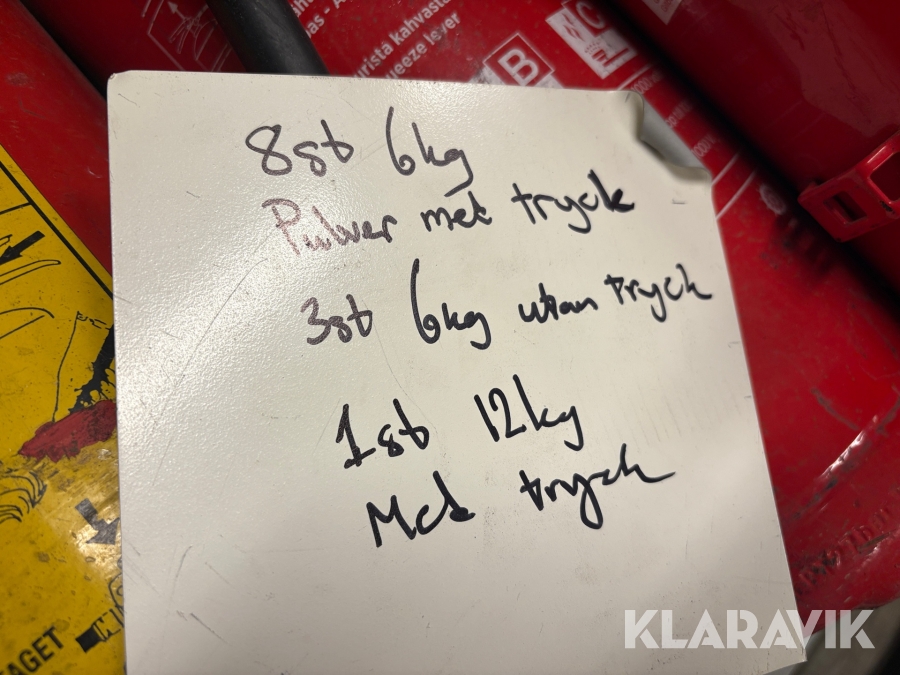 urista kahvasta
as - A
ueeze lever
B
C
8st 6kg
Pulver med tryck
3st 6kg utan tryck
1st 12kg
Med tryck
AGET
KLARAVIK